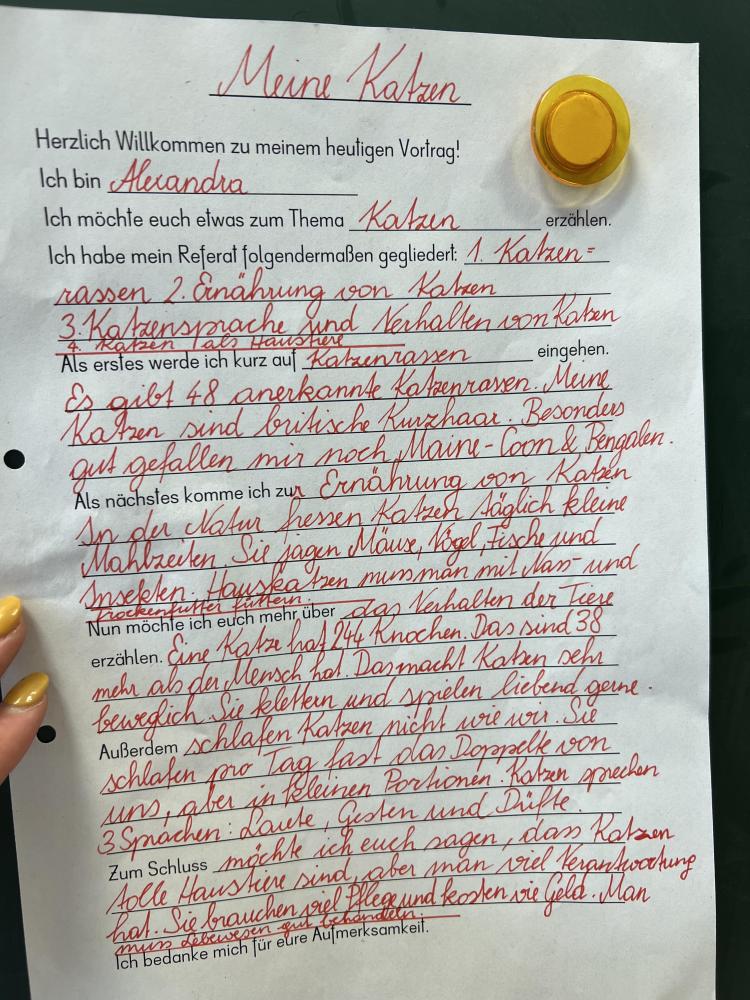 Meine Katzen
Herzlich Willkommen zu meinem heutigen Vortrag!
Ich bin Alexandra
Ich möchte euch etwas zum Thema Katzen erzählen.
Ich habe mein Referat folgendermaßen gegliedert: 1. Katzen=
rassen 2. Ernährung von Katzen
3. Katzensprache und Verhalten von Katzen
4. Katzen als Haustiere
Als erstes werde ich kurz auf Katzenrassen eingehen.
Es gibt 48 anerkannte Katzenrassen. Meine
Katzen sind britische Kurzhaar. Besonders
gut gefallen mir noch Maine-Coon & Bengalen.
Als nächstes komme ich zur Ernährung von Katzen
In der Natur fressen Katzen täglich kleine
Mahlzeiten. Sie jagen Mäuse, Vögel, Fische und
Insekten. Hauskatzen muss man mit Nass- und
Trockenfutter füttern.
Nun möchte ich euch mehr über das Verhalten der Tiere
erzählen. Eine Katze hat 244 Knochen. Das sind 38
mehr als der Mensch hat. Das macht Katzen sehr
beweglich. Sie klettern und spielen liebend gerne.
Außerdem schlafen Katzen nicht wie wir. Sie
schlafen pro Tag fast das Doppelte von
uns, aber in kleinen Portionen. Katzen sprechen
3 Sprachen: Laute, Gesten und Düfte.
Zum Schluss möchte ich euch sagen, dass Katzen
tolle Haustiere sind, aber man viel Verantwortung
hat. Sie brauchen viel Pflege und kosten vie Geld. Man
muss Lebewesen gut behandeln.
Ich bedanke mich für eure Aufmerksamkeit.